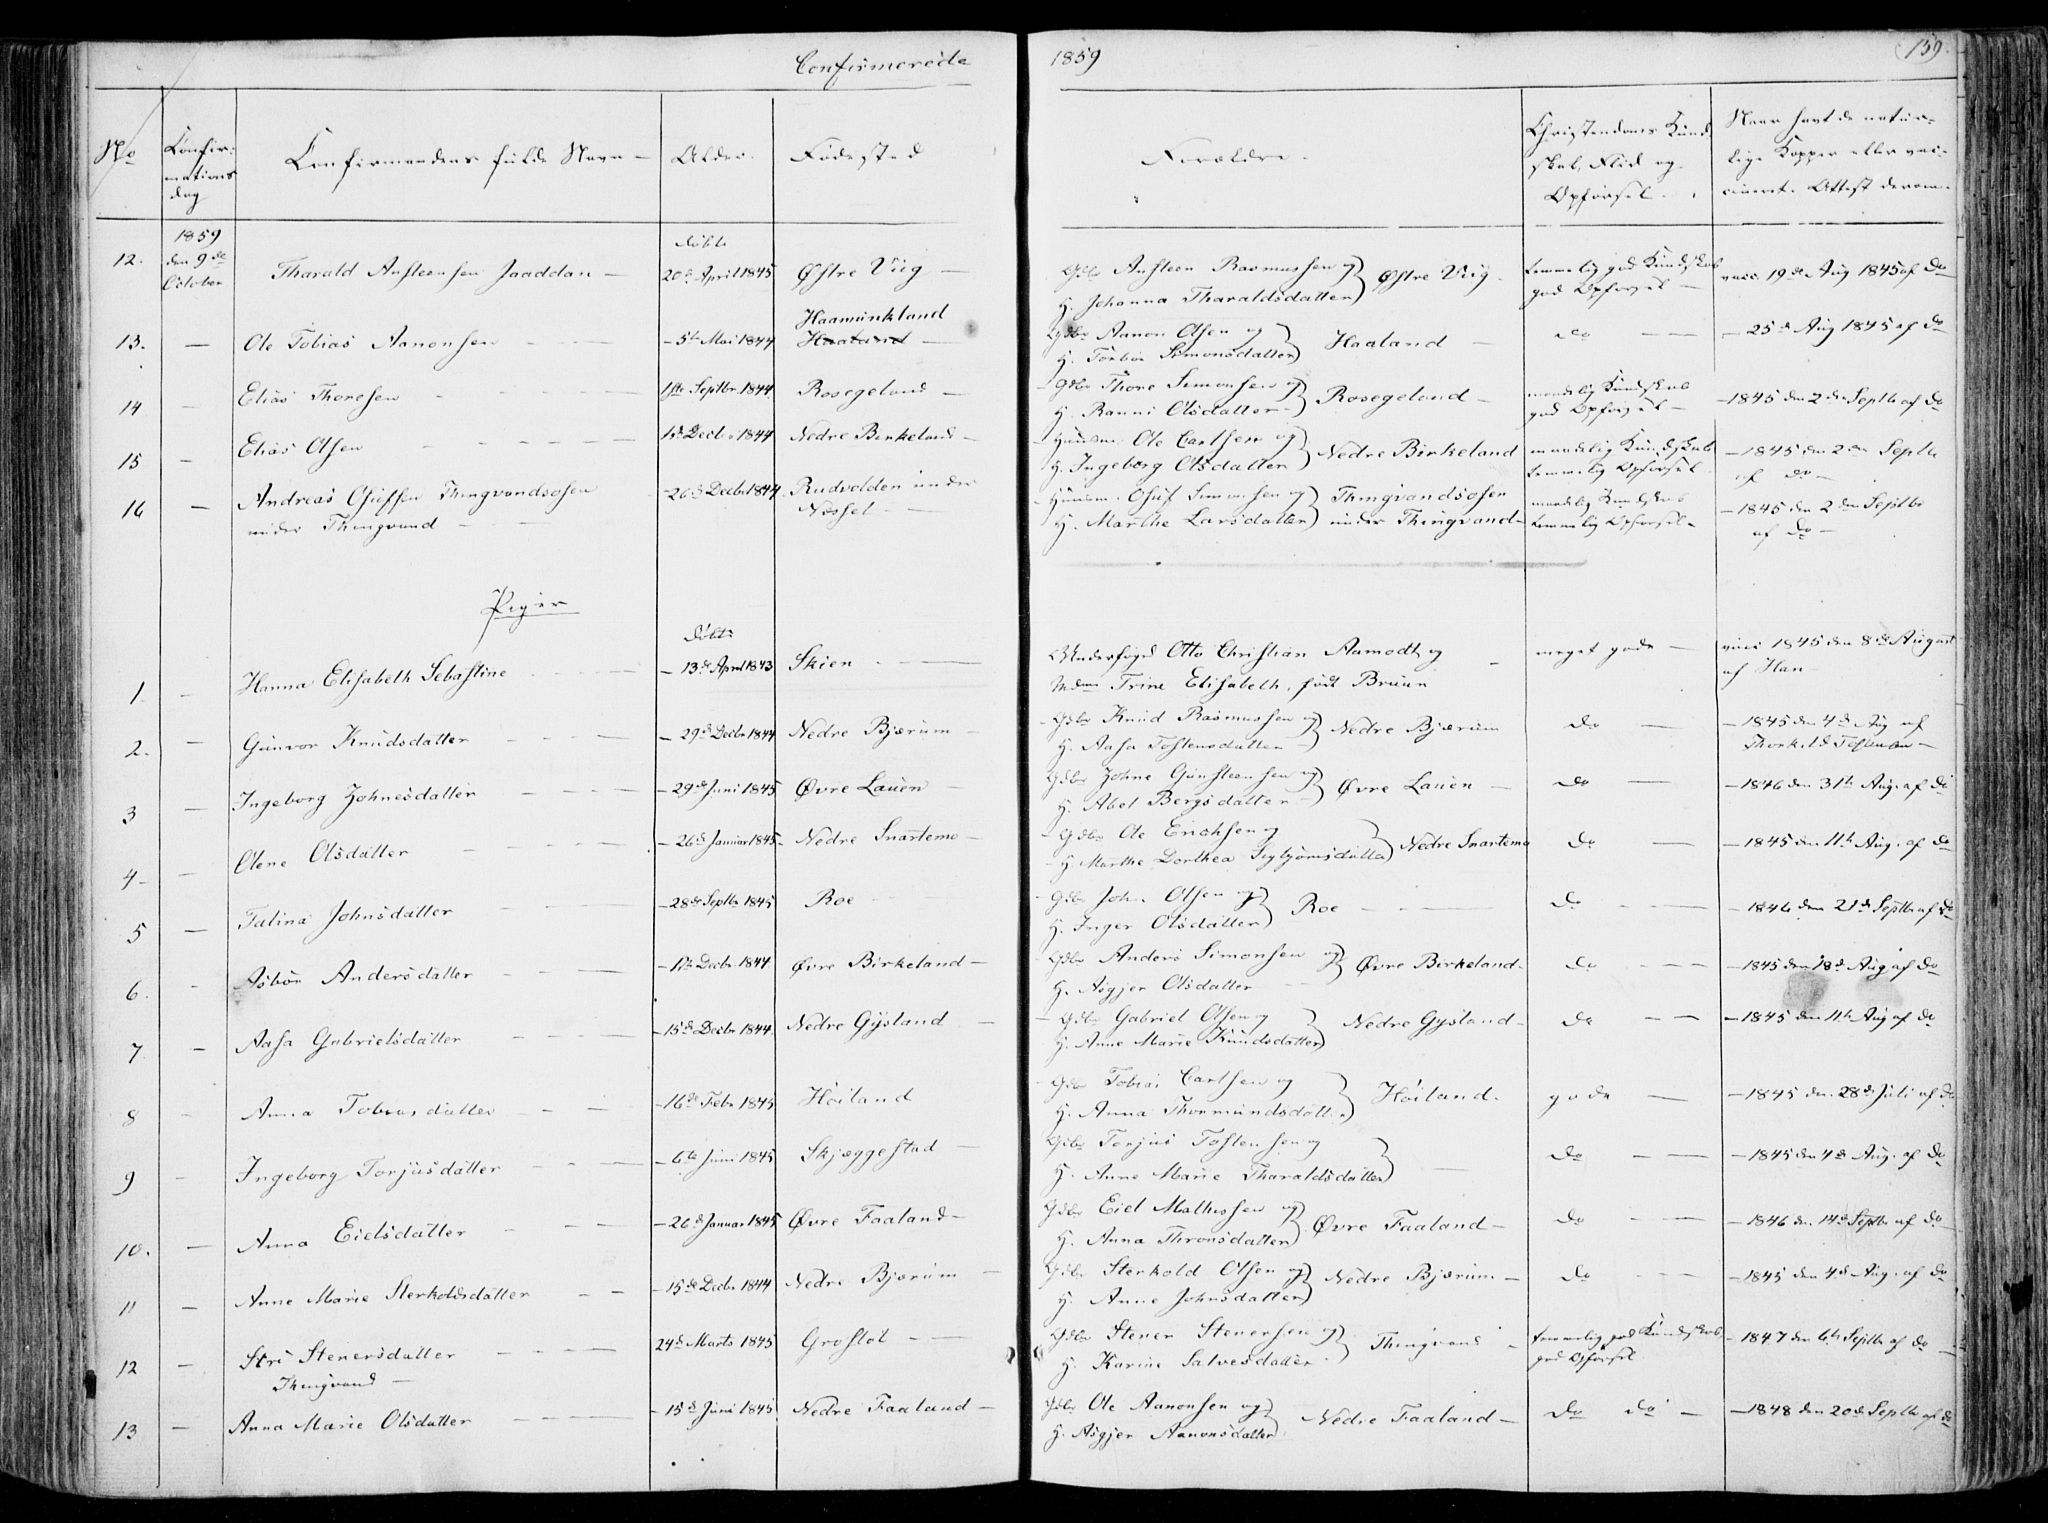 Confirmerede
1859
159.
No
Confir-
mations
dag
Confirmandens fulde Navn
Alder.
Fødested
Forældre.
Christendoms Kund-
skab, Flid og
Opførsel.
Naar havt de natur-
lige Kopper eller vac-
cineret. Attest derom.
12. 1859 den 9de October Tharald Ansteensen Jaaddan døbt 20de April 1845 Østre Viig Gdbr Ansteen Rasmussen og H. Johanna Tharaldsdatter Østre Viig temmelig god Kundskab god Opførsel vacc. 19de Aug 1845 af Do
13. Ole Tobias Aanonsen 5te Mai 1844 Haamunkland Haaland Gdbr Aanon Olsen og H. Torbor Simonsdatter Haaland do 25de Aug 1845 af do
14 Elias Thoresen 1ste Septbr. 1844 Rosegeland Gdbr Thore Simonsen og H. Ranni Olsdatter Rosegeland maadelig Kundskab god Opførsel 1845 den 2den Septb af do
15 Elias Olsen 1ste Decbr 1844 Nedre Birkeland Huusm. Ole Carlsen og H. Ingeborg Olsdatter Nedre Birkeland maadelig Kundskab temmelig Opførsel 1845 den 2den Septbr af do
16 Andreas Osufsen Thingvandsosen under Thingvand 26de Decbr 1844 Rudvolden under Nossel Huusm. Osuf Simonsen og H. Marthe Larsdatter Thingvandsosen under Thingvand maadelig Kundskab temmelig Opførsel 1845 den 2den Septbr af Do
Piger
1. Hanna Elisabeth Sebastine døbt 13de April 1843 Skien Underfoged Otto Christian Aamodt og Mdme Trine Elisabeth, født Bruun meget gode vacc 1845 den 8de August af Han
2. Gunvor Knudsdatter 29de Decbr 1844 Nedre Bjærum Gdbr Knud Rasmussen og H. Aasa Tostensdatter Nedre Bjærum do 1845 den 4de Aug af Thorkild Tostensen
3 Ingeborg Johnesdatter 29de Juni 1845 Øvre Lauen Gdbr Johne Gunsteensen og H. Abel Bergsdatter Øvre Lauen do 1846 den 31te Aug. af do
4 Olene Olsdatter 26de Januar 1845 Nedre Snartemo Gdbr Ole Erichsen og H. Marthe Dorthea Sigbjørnsdatter Nedre Snartemo do 1845 den 11te Aug. af do
5 Talina Johnsdatter 28de Septbr 1845 Roe Gdbr John Olsen og H. Inger Olsdatter Roe do 1846 den 21de Septbr af do
6. Asbor Andersdatter 17de Decbr. 1844 Øvre Birkeland Gdbr Anders Simonsen og H. Asgjer Olsdatter Øvre Birkeland do 1845 den 18de Aug af do
7 Aasa Gabrielsdatter 15de Decbr 1844. Nedre Gysland Gdbr Gabriel Olsen og H. Anne Marie Knudsdatter Nedre Gysland do 1845 den 11te Aug af do
8 Anna Tobiasdatter 16de Febr 1845 Høiland Gdbr Tobias Carlsen og H. Anna Thormundsdatter Høiland. gode 1845 den 28de Juli af do
9 Ingeborg Torjusdatter 6te Juni 1845 Skjæggestad Gdbr Torjus Tostensen og H. Anne Marie Tharaldsdatter do 1845 den 4de Aug. af do
10. Anna Eielsdatter 26de Januar 1845 Øvre Faaland Gdbr Eiel Mathissen og H. Anna Thronsdatter Øvre Faaland do 1846 den 14de Septbr af do
11 Anne Marie Sterkoldsdatter 15de Decbr 1844 Nedre Bjærum Gdbr Sterkold Olsen og H. Anne Johnsdatter Nedre Bjærum do 1845 den 4de Aug. af do
12 Siri Stenersdatter Thingvand 24de Marts 1845 Grostøl Gdbr Stener Stenersen og H. Karine Salvesdatter Thingvand temmelig god Kundskab god Opførsel 1847 den 6te Septbr af do
13 Anna Marie Olsdatter 15de Juni 1845 Nedre Faaland Gdbr Ole Aanonsen og H. Asgjer Aanonsdatter Nedre Faaland do do 1848 den 20de Septbr af do